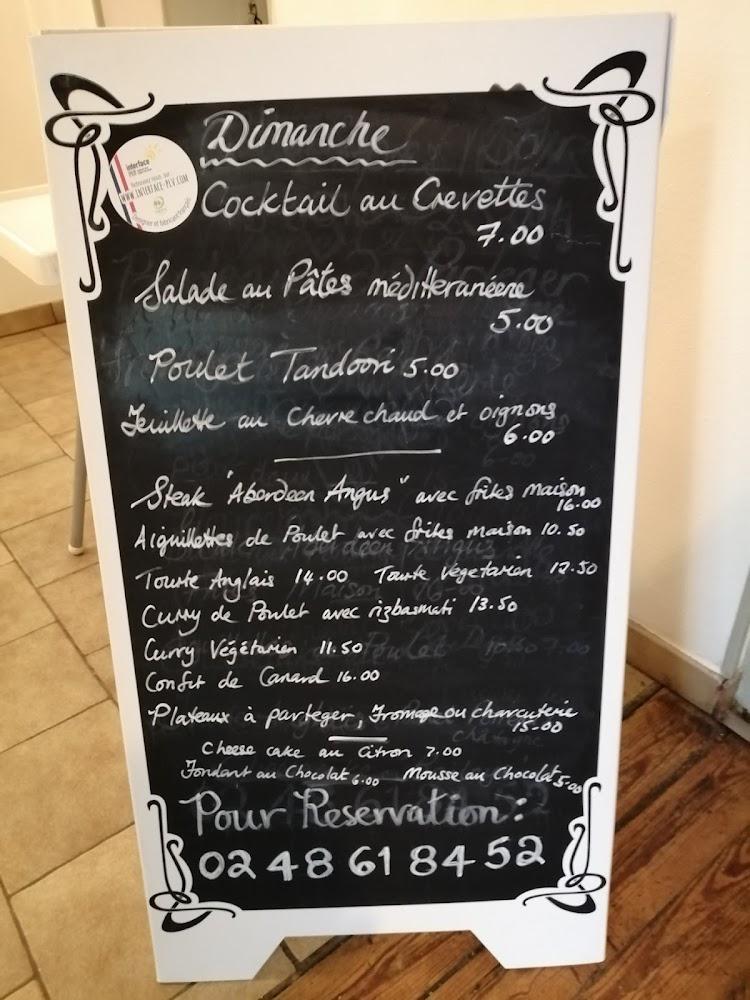 Dimanche
interface
WWW.INTERFACE-PLV.COM
Cocktail au Crevettes
7.00
Salade au Pâtes méditteranéene
5.00
Poulet Tandoori 5.00
Feuillette au Chevre chaud et oignons
6.00
Steak "Aberdeen Angus" avec frites Maison
16.00
Aiguillettes de Poulet avec frites maison 10.50
Tourte Anglais 14.00 Tourte Vegetarien 12.50
Curry de Poulet avec rizbasmati 13.50
Curry Végétarien 11.50
Confit de Canard 16.00
Plateaux à parteger, Fromage ou charcuterie
15.00
Cheese cake au Citron 7.00
Fondant au Chocolat 6.00 Mousse au Chocolat 5.00
Pour Reservation:
02 48 61 84 52